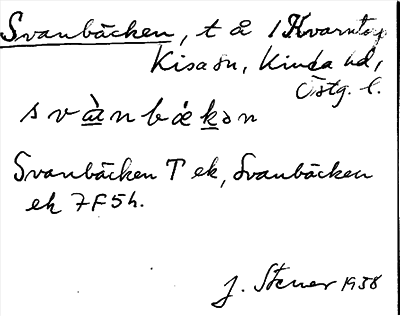 Svanbäcken, t å 1 Kvarntorp
Kisa sn, Kinda hd,
Östg. l.
svànbǽkən
Svanbäcken T ek, Svanbäcken
ek 7F5h.
J. Stener 1938